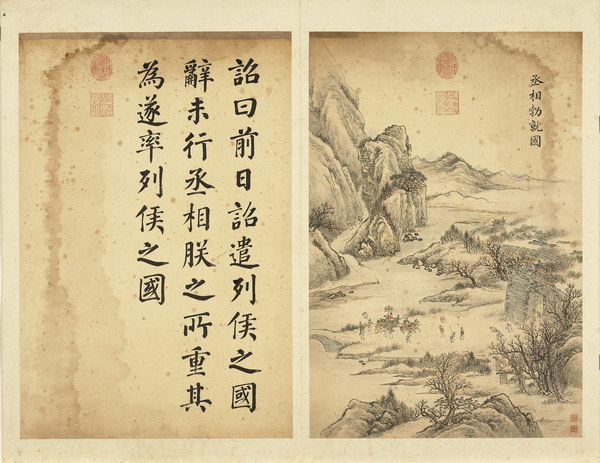 丞相勃就國
詔曰前日詔遣列侯之國
辭未行丞相朕之所重其
為遂率列侯之國